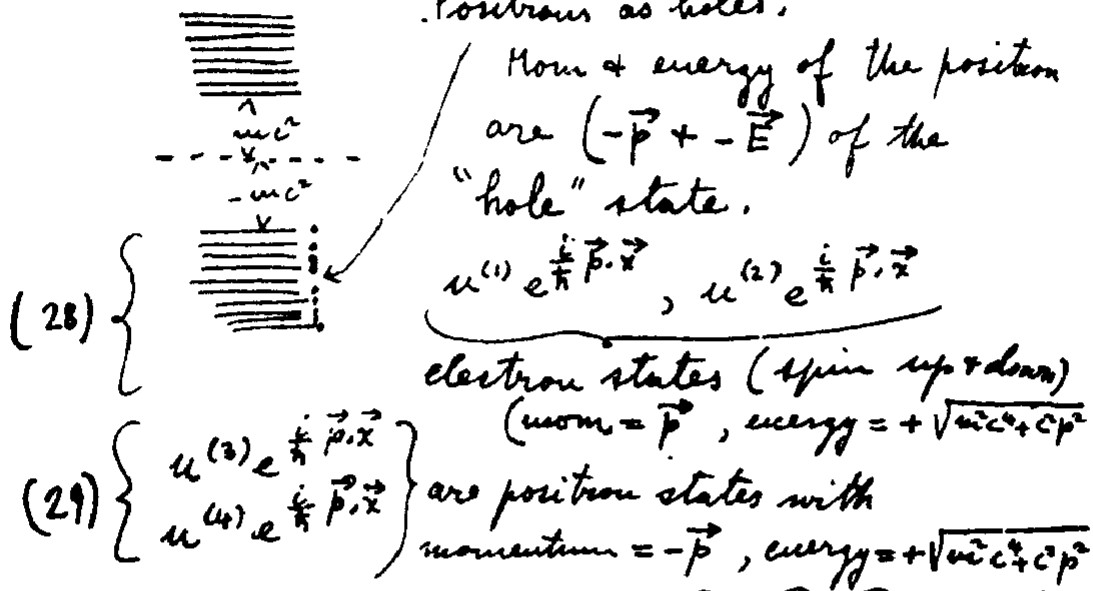 Positrons as holes.
Mom & energy of the positron
are (-p⃗ & -E⃗) of the
"hole" state.
mc²
-mc²
(28)
u⁽¹⁾ e^{i/ħ p⃗·x⃗}, u⁽²⁾ e^{i/ħ p⃗·x⃗}
electron states (spin up & down)
(mom = p⃗, energy = +√m²c⁴+c²p²
(29) { u⁽³⁾ e^{i/ħ p⃗·x⃗}
u⁽⁴⁾ e^{i/ħ p⃗·x⃗} }
are positron states with
momentum = -p⃗, energy = +√m²c⁴+c²p²